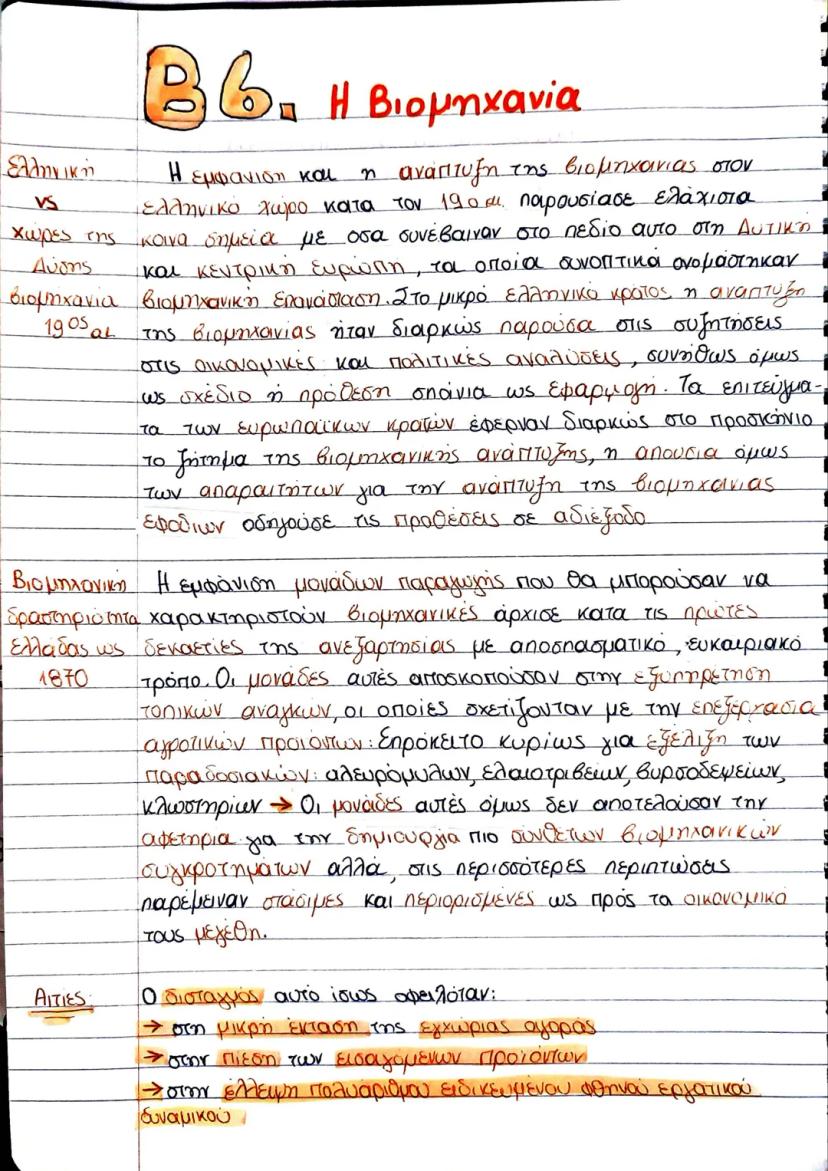 Β6. Η Βιομηχανία
Ελληνική
vs
χώρες της
Δύσης
βιομηχανία
19ος αι.
Η εμφάνιση και η ανάπτυξη της βιομηχανίας στον
ελληνικό χώρο κατα τον 19ο αι. παρουσίασε ελάχιστα
κοινα σημεία με οσα συνέβαιναν στο πεδίο αυτο στη Δυτική
και κεντρική Ευρώπη, τα οποία συνοπτικά ονομάστηκαν
βιομηχανική επανάσταση. Στο μικρό ελληνικό κράτος η ανάπτυξη
της βιομηχανίας ήταν διαρκώς παρούσα στις συζητήσεις
στις οικονομικές και πολιτικές αναλύσεις, συνήθως όμως
ως σχέδιο ή πρόθεση σπάνια ως εφαρμογή. Τα επιτεύγμα-
τα των ευρωπαϊκων κρατών έφερναν διαρκώς στο προσκήνιο
το ζήτημα της βιομηχανικής ανάπτυξης, η απουσία όμως
των απαραιτήτων για την ανάπτυξη της βιομηχανίας
εφοδίων οδηγούσε τις προθέσεις σε αδιέξοδο
Βιομηχανική
δραστηριότητα
Ελλάδας ως
1870
Η εμφάνιση μονάδων παραγωγής που θα μπορούσαν να
χαρακτηριστούν βιομηχανικές άρχισε κατα τις πρώτες
δεκαετίες της ανεξαρτησίας με αποσπασματικό, ευκαιριακό
τρόπο. Οι μονάδες αυτές αποσκοπούσαν στην εξυπηρέτηση
τοπικών αναγκων, οι οποίες σχετίζονταν με την επεξεργασία
αγροτικών προϊόντων: Επρόκειτο κυρίως για εξέλιξη των
παραδοσιακών: αλευρόμυλων, ελαιοτριβείων, βυρσοδεψείων,
κλωστηρίων → Οι μονάδες αυτές όμως δεν αποτελούσαν την
αφετηρία για την δημιουργία πιο συνθετων βιομηχανικών
συγκροτημάτων αλλά, στις περισσότερες περιπτώσεις
παρέμειναν στάσιμες και περιορισμένες ως πρός τα οικονομικά
τους μεγέθη.
Αιτίες:
Ο δισταγμός αυτό ίσως οφειλόταν:
→ στη μικρή έκταση της εγχώριας αγοράς
→ στην πίεση των εισαγόμενων προϊόντων
→ στην έλλειψη πολυάριθμου ειδικευμένου φθηνού εργατικού
δυναμικού